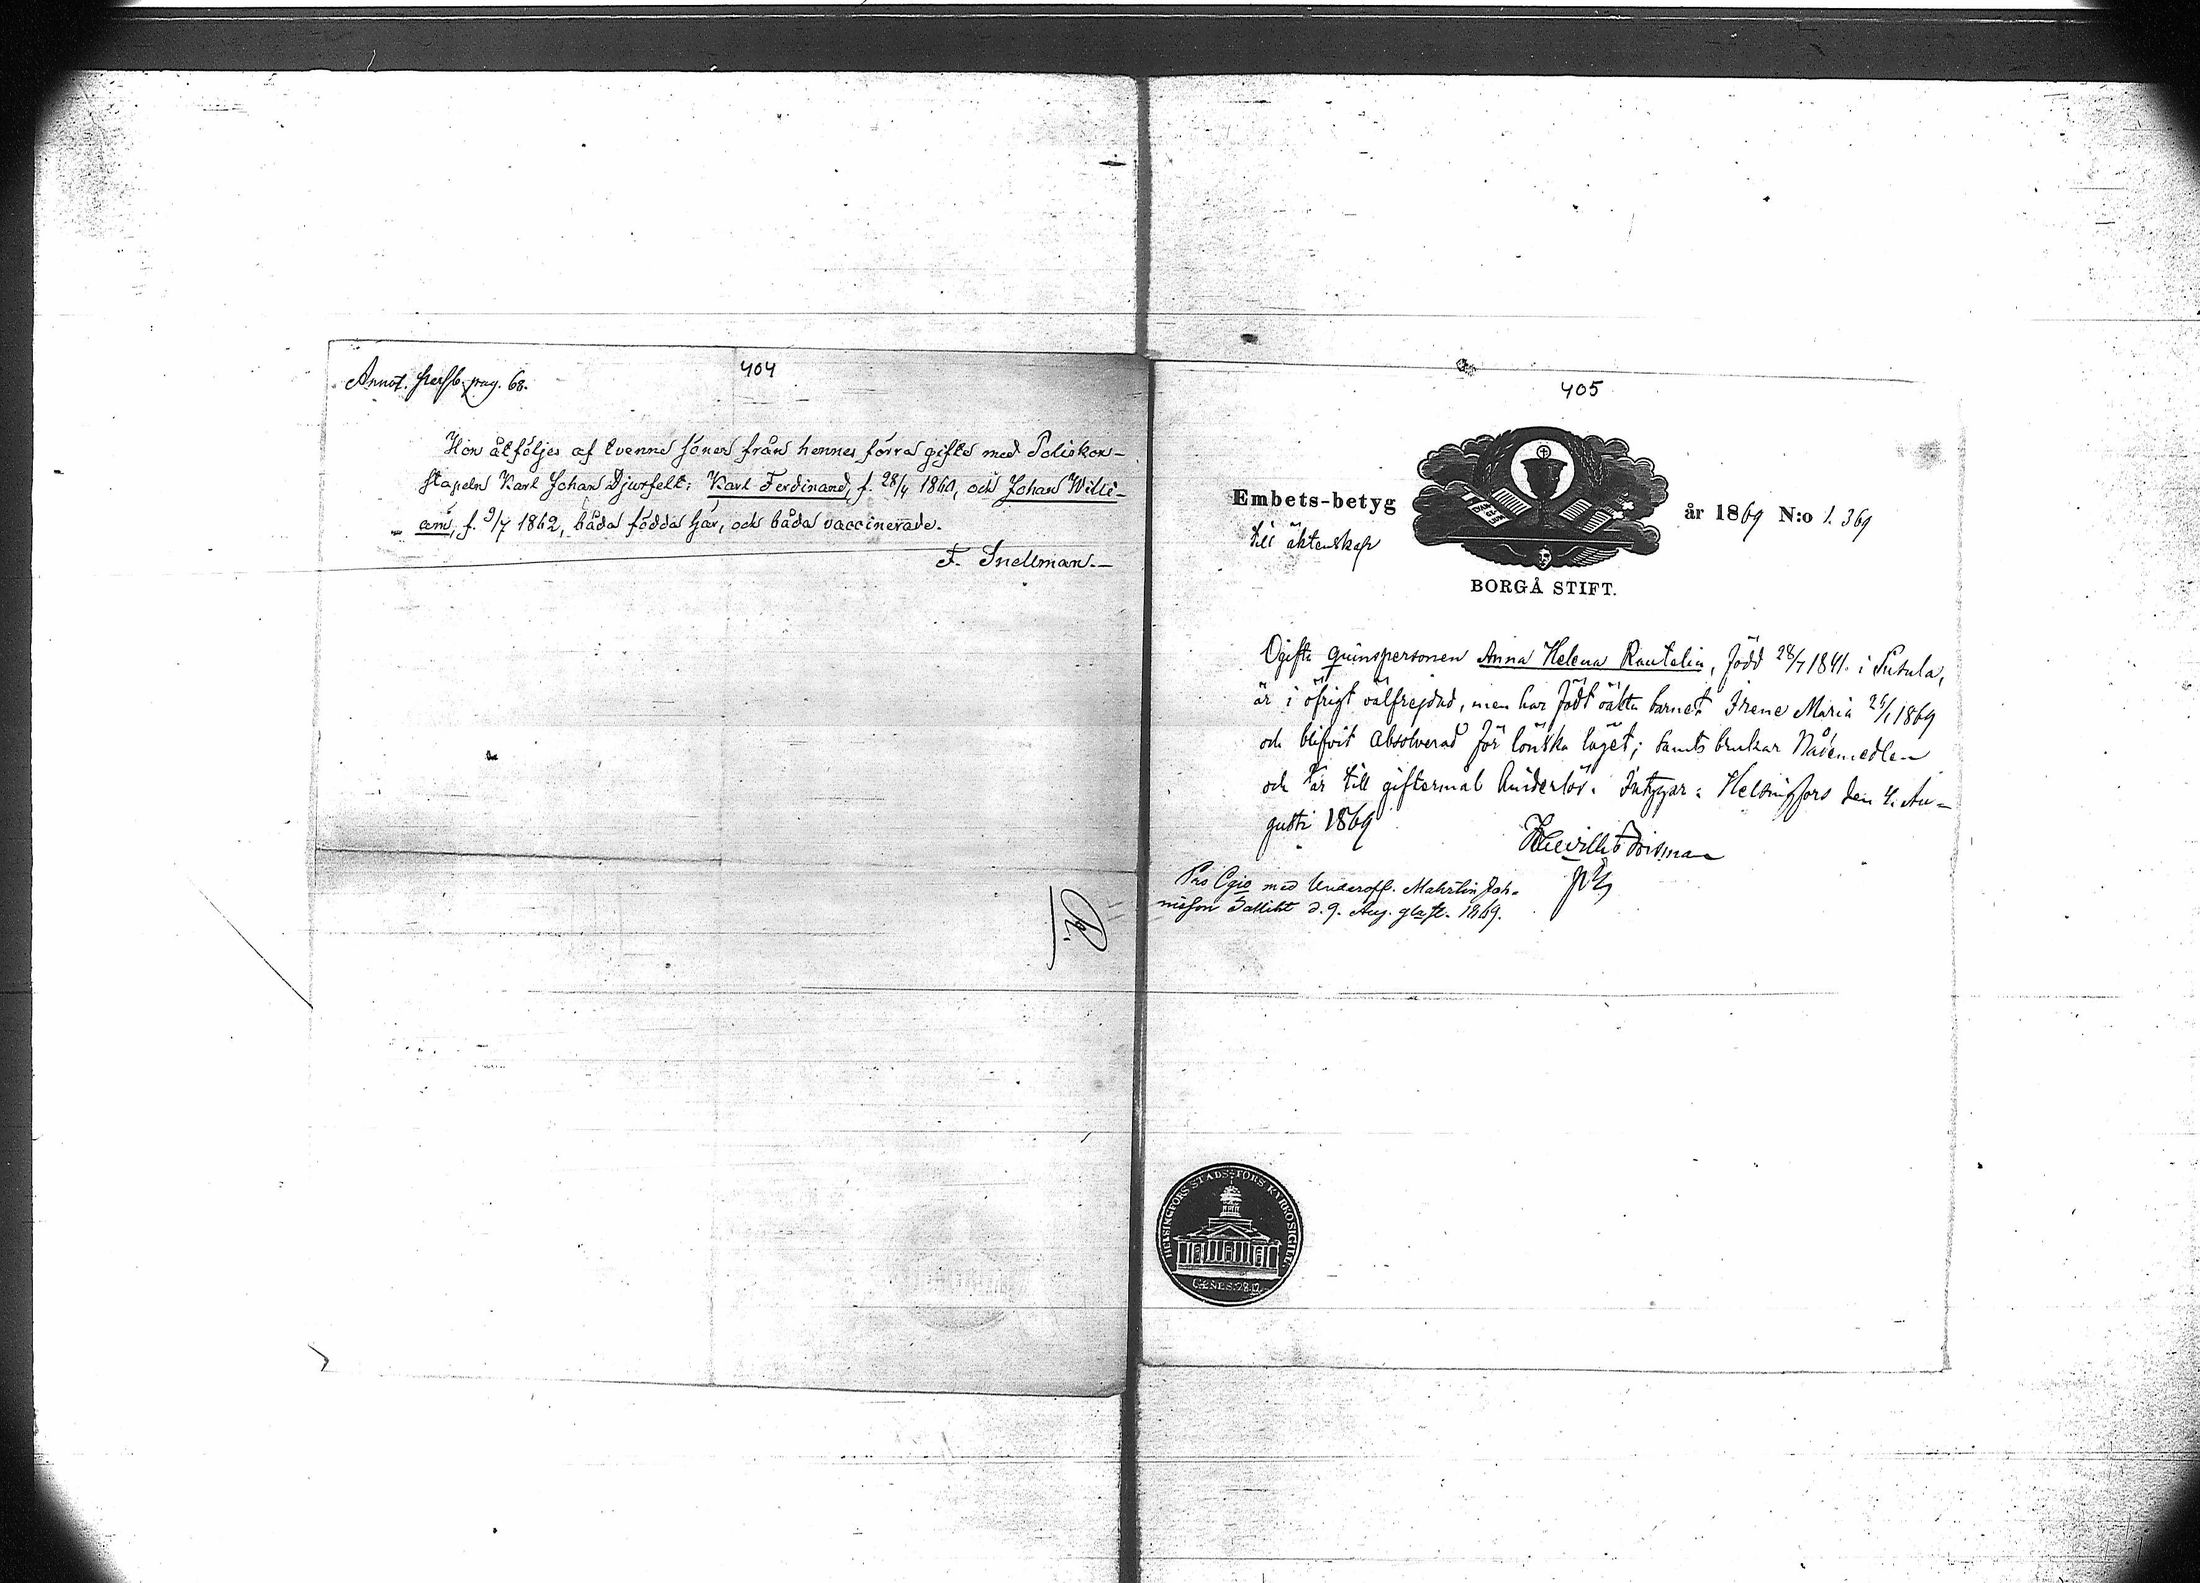 404
Annot. pag. 68.
Hon åtföljes af tvenne söner från hennes förra gifte med Poliskon-
stapeln Karl Johan Djurfelt: Karl Ferdinand, f. 28/4 1860, och Johan Willi-
am, f. 9/7 1862, båda födda här, och båda vaccinerade.
F. Snellman.—
405
Embets-betyg
år 1869 N:o 1.369
till äktenskap
BORGÅ STIFT.
Ogifta qvinspersonen Anna Helena Rautelin, född 28/7 1841. i Pusula,
är i öfrigt välfrejdad, men har födt oäkta barnet Irene Maria 1869
och blifvit absolverad för lönska läget; samt brukar Nådemedlen
och är till giftermål hinderlös. Intygar: Helsingfors den 4. Au-
gusti 1869
med Underoff. Joh-
d. 9. Aug. 1869.
HELSINGFORS STADS FÖRS. KYRKO SIGILL.
GENES: 28.17.